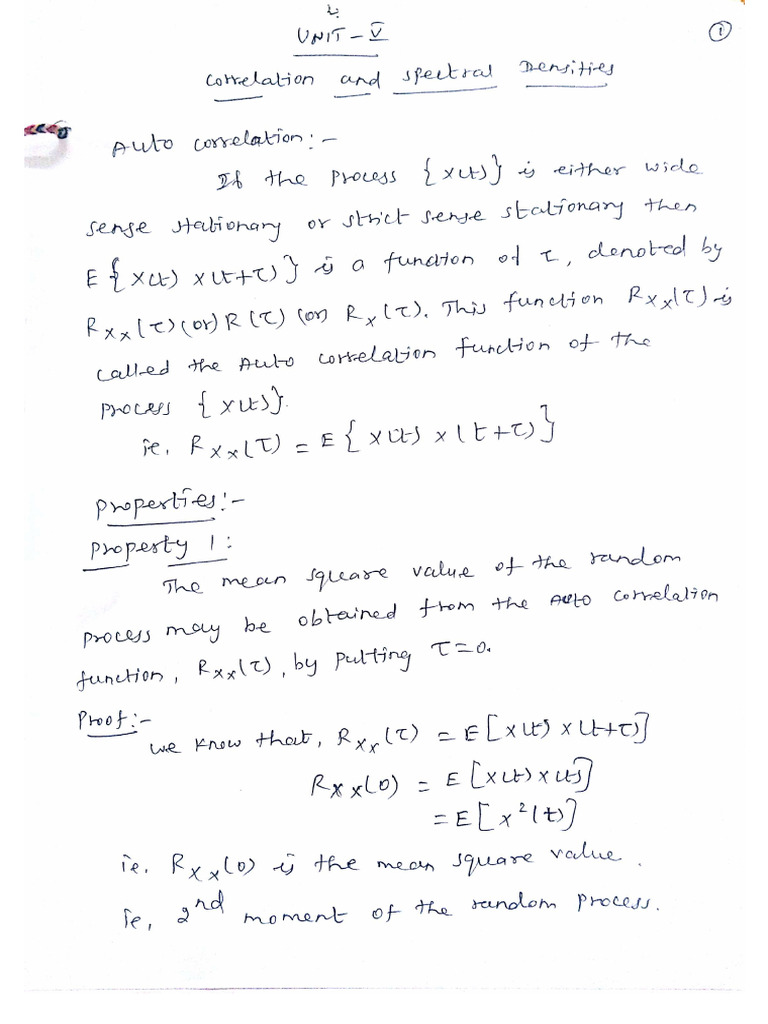 UNIT - V
①
Correlation and Spectral Densities
Auto correlation :-
If the process {X(t)} is either wide
sense stationary or strict sense stationary then
E{X(t) X(t+τ)} is a function of τ, denoted by
R_XX(τ) (or) R(τ) (or) R_X(τ). This function R_XX(τ) is
called the Auto correlation function of the
process {X(t)}.
ie, R_XX(τ) = E{X(t) X(t+τ)}
Properties :-
Property 1 :
The mean square value of the random
process may be obtained from the Auto correlation
function, R_XX(τ), by putting τ=0.
Proof :-
We know that, R_XX(τ) = E[X(t) X(t+τ)]
R_XX(0) = E[X(t) X(t)]
= E[X²(t)]
ie, R_XX(0) is the mean square value.
ie, 2nd moment of the random process.